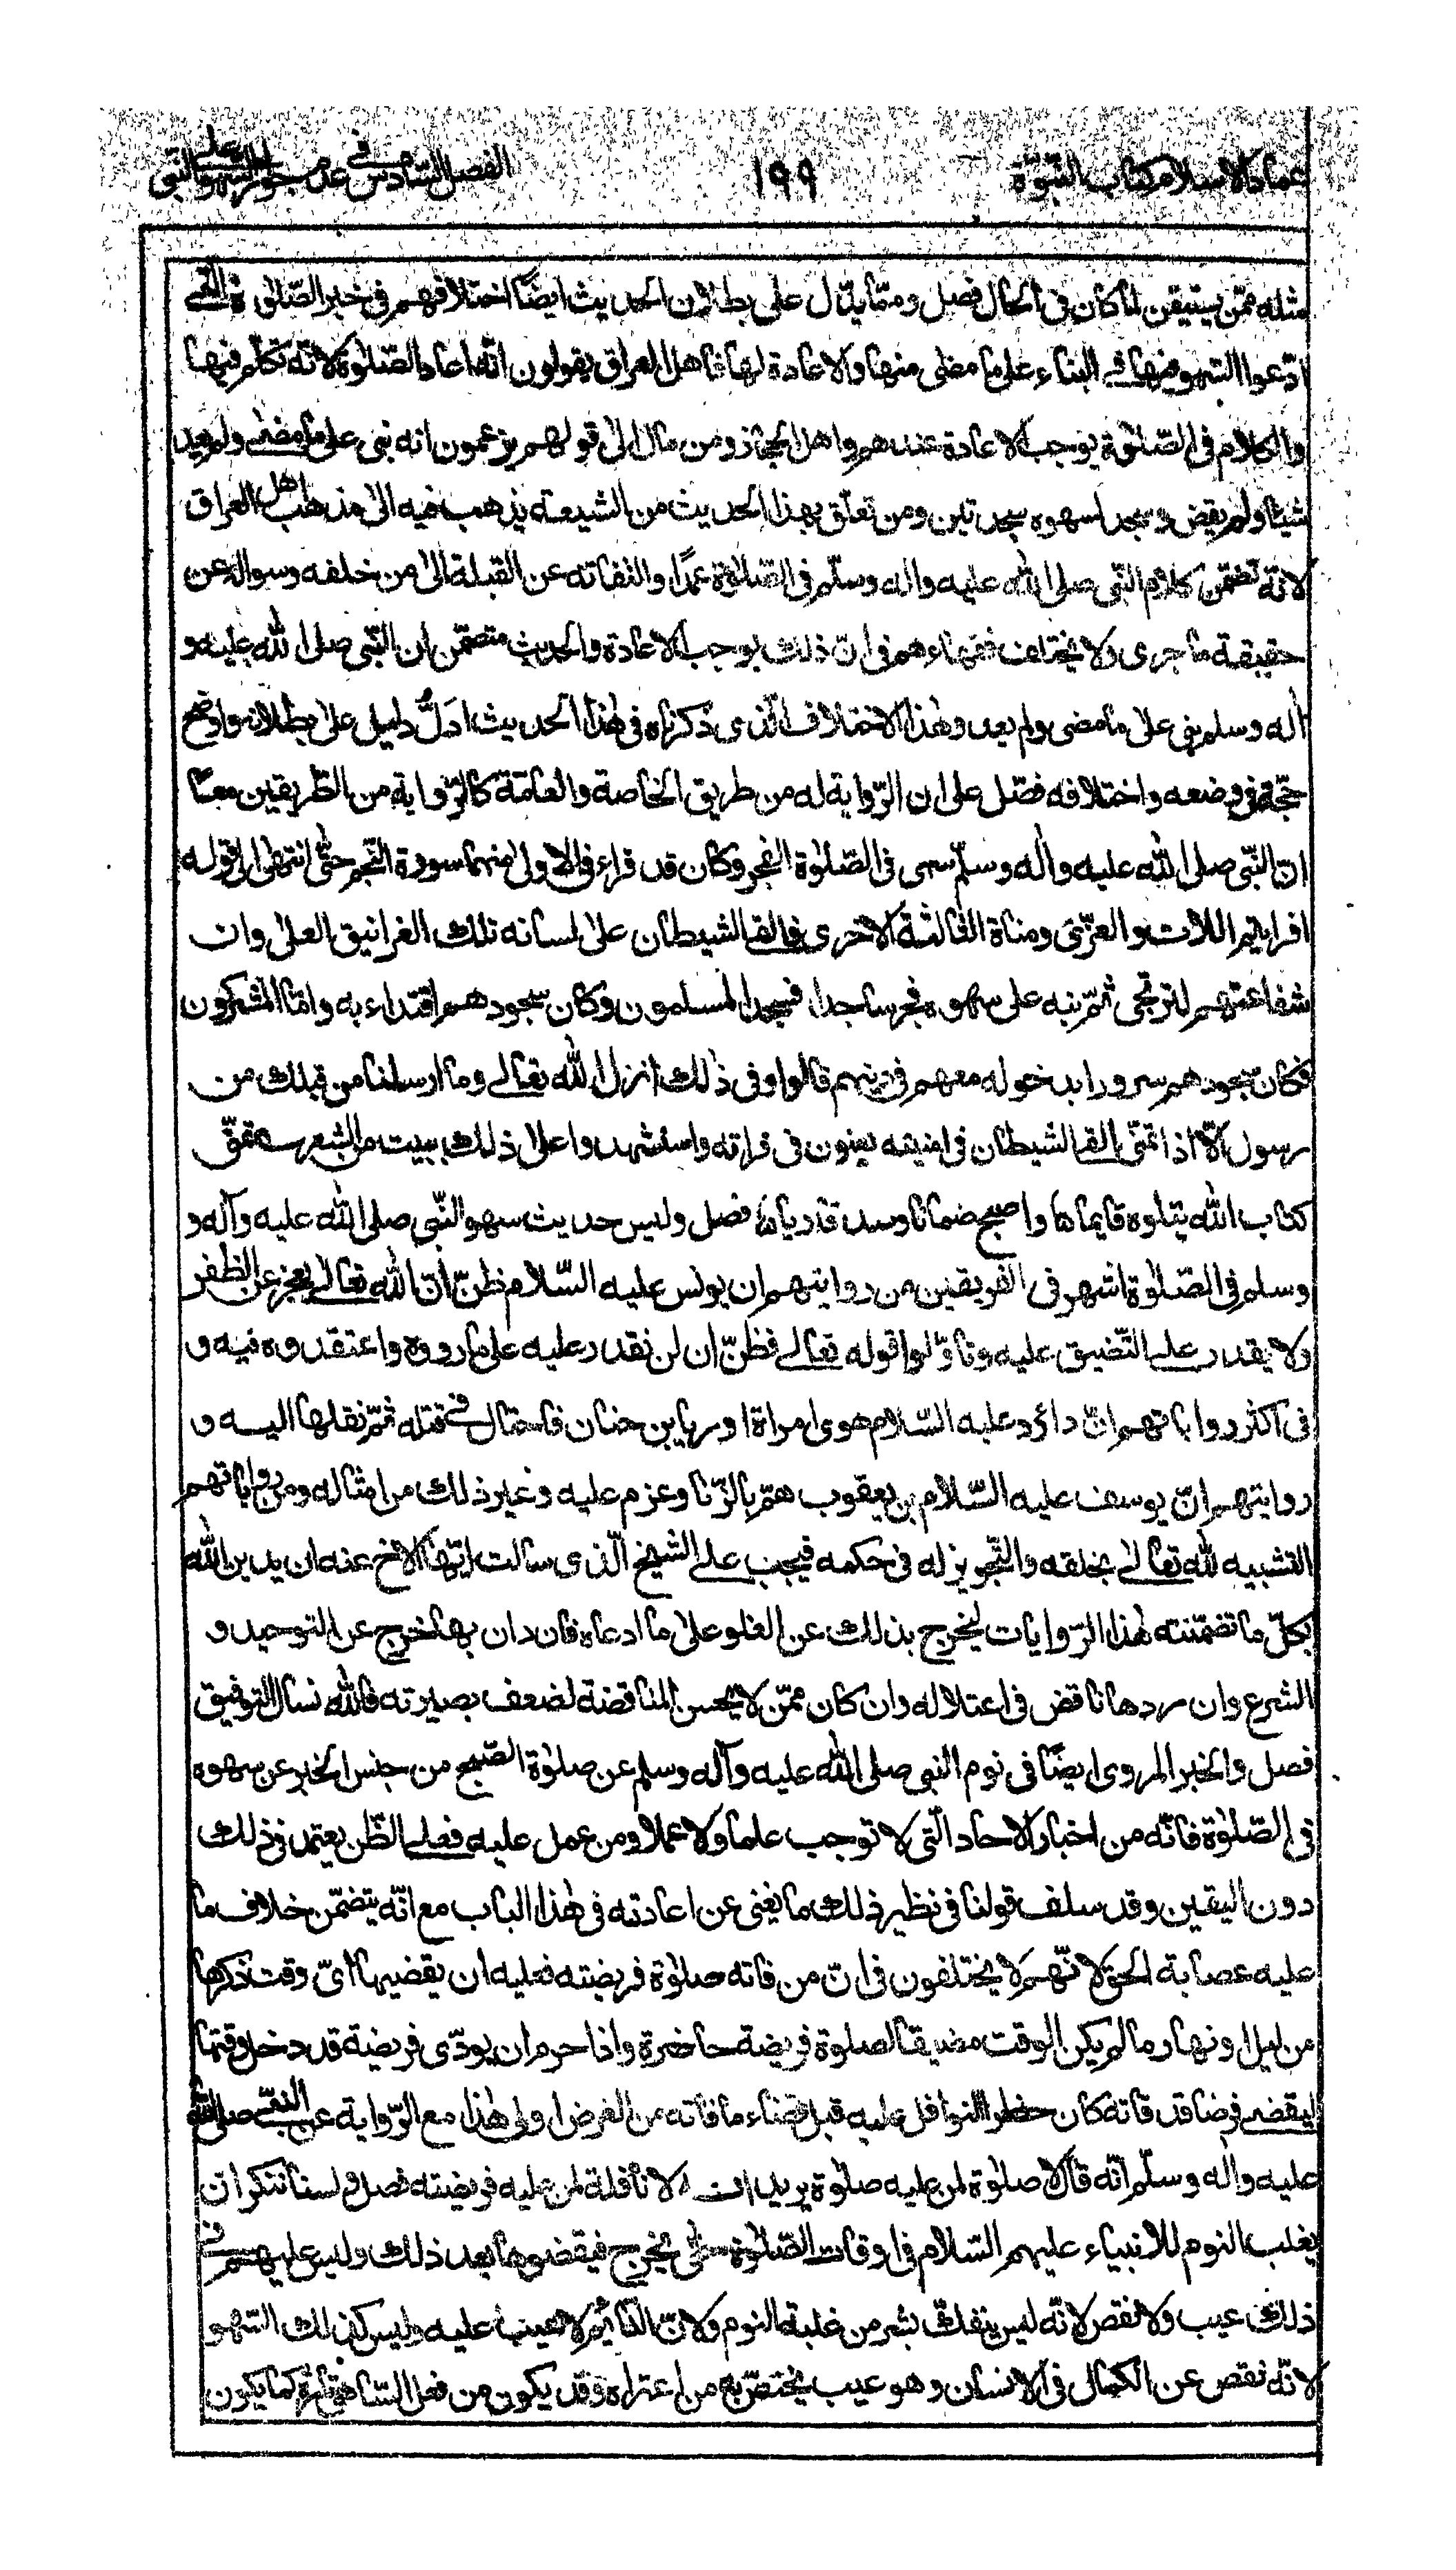 عماد الاسلام كتاب النبوّة ١٩٩ الفصل السّادس في عدم جواز السّهو على النّبي
مثله ممّن يستيقن لما كان في الحال فصل وممّا يدلّ على بطلان الحديث ايضًا اختلافهم في خبر الصّلوٰة الّتي
ادّعوا السّهو فيها في البناء على ما مضى منها والاعادة لها فاهل العراق يقولون انّه اعاد الصّلوٰة لانّه تكلّم فيها
والكلام في الصّلوٰة يوجب الاعادة عندهم واهل الحجاز ومن مال الى قولهم يزعمون انه بنى على ما مضى ولم يعد
شيئا ولم يقض وسجد لسهوه سجدتين ومن تعلّق بهذا الحديث من الشيعة يذهب فيه الى مذهب اهل العراق
لانّه تضمّن كلام النّبي صلى الله عليه واله وسلّم في الصّلوٰة عمدًا والتفاته عن القبلة الىٰ من خلفه وسواله عن
حقيقة ما جرى ولا يختلف فقهاءهم في انّ ذلك يوجب الاعادة والحديث متضمّن ان النّبي صلى الله عليه و
اٰله وسلم بنى علىٰ ما مضى ولم يعد وهٰذا الاختلاف الّذى ذكرناه في هٰذا الحديث ادَلُّ دليل علىٰ بطلانه واوضح
حجّة في وضعه واختلافه فصل على ان الرّواية له من طريق الخاصة والعامّة كالرّواية من الطّريقين معًا
انّ النّبي صلى الله عليه واٰله وسلّم سهى في الصّلوٰة الفجر وكان قد قراء في الاولىٰ منهما سورة النّجم حتّى انتهىٰ الى قوله
افرايتم اللات والعزّى ومناة الثالثة الاخرى فالقى الشيطان علىٰ لسانه تلك الغرانيق العلىٰ وان
شفاعتهم لترتجى ثمّ نبه على سهوه فخر ساجدا فسجد المسلمون وكان سجودهم اقتداء به وامّا المشركون
فكان سجودهم سرورا بدخوله معهم في دينهم قالوا وفى ذٰلك انزل الله تعالى وما ارسلنا من قبلك من
رسول الّا اذا تمنّى القى الشيطان في امنيته يعنون فى قراته واستشهدوا علىٰ ذلك ببيت من الشعر تمنّى
كتاب الله يتلوه قايما واصبح ضمانا وسد قاديا فصل وليس حديث سهو النّبي صلى الله عليه وآله و
وسلم في الصّلوٰة اشهر في الفريقين من روايتهم ان يونس عليه السّلام ظنّ انّ الله تعالى يعجز عن الظفر
ولا يقدر على التّضيق عليه وتاوّلوا قوله تعالى فظنّ ان لن نقدر عليه على ما رووه واعتقدوه فيه و
فى اكثر رواياتهم انّ داؤد عليه السّلام هوى امراة اوريا بن حنان فاحتال في قتله ثمّ نقلها اليه و
روايتهم انّ يوسف عليه السّلام بن يعقوب همّ بالزّنا وعزم عليه وغير ذلك من امثاله ومن رواياتهم
التشبيه لله تعالى بخلقه والتّجويز له فى حكمه فيجب على الشيخ الّذى سالت ايّها الاخ عنه ان يدين الله
بكلّ ما تضمّنته هٰذا الرّوايات ليخرج بذلك عن الغلو علىٰ ما ادعاه فان دان بها خرج عن التوحيد و
الشرع وان ردها ناقض فى اعتلاله وان كان ممّن لا يحسن المناقضة لضعف بصيرته فالله نسال التوفيق
فصل والخبر المروى ايضًا فى نوم النبي صلى الله عليه وآله وسلم عن صلوٰة الصّبح من جنس الخبر عن سهوه
فى الصّلوٰة فانّه من اخبار الاحاد الّتى لا توجب علما ولا عملا ومن عمل عليه فعلى الظّن يعتمد في ذلك
دون اليقين وقد سلف قولنا فى نظير ذلك ما يغنى عن اعادته فى هٰذا الباب مع انّه يتضمّن خلاف ما
عليه عصابة الحق لانّهم لا يختلفون فى انّ من فاته صلوٰة فريضته فعليه ان يقضيها اىّ وقت ذكرها
من ليل او نهار ما لم يكن الوقت مضيقا لصلوة فريضة حاضرة واذا حرم ان يودّى فريضة قد دخل وقتها
ليقضى فرضا قد فاته كان حظر النوافل عليه قبل قضاء ما فاته من الفرض اولى هٰذا مع الرّواية عن النّبي صلى الله
عليه واٰله وسلّم انّه قال لا صلوٰة لمن عليه صلوٰة يريد انه لا نافلة لمن عليه فريضته فصل ولسنا ننكر ان
يغلب النوم للانبياء عليهم السّلام في اوقات الصّلوٰة حتّى يخرج فيقضوها بعد ذلك وليس عليهم في
ذلك عيب ولا نقص لانّه ليس ينفكّ بشر من غلبة النوم ولانّ النّائم لا عيب عليه وليس كذلك السّهو
لانّه نقص عن الكمال فى الانسان وهو عيب يختصّ به من اعتراه وقد يكون من فعل السّاهى تارة كما يكون